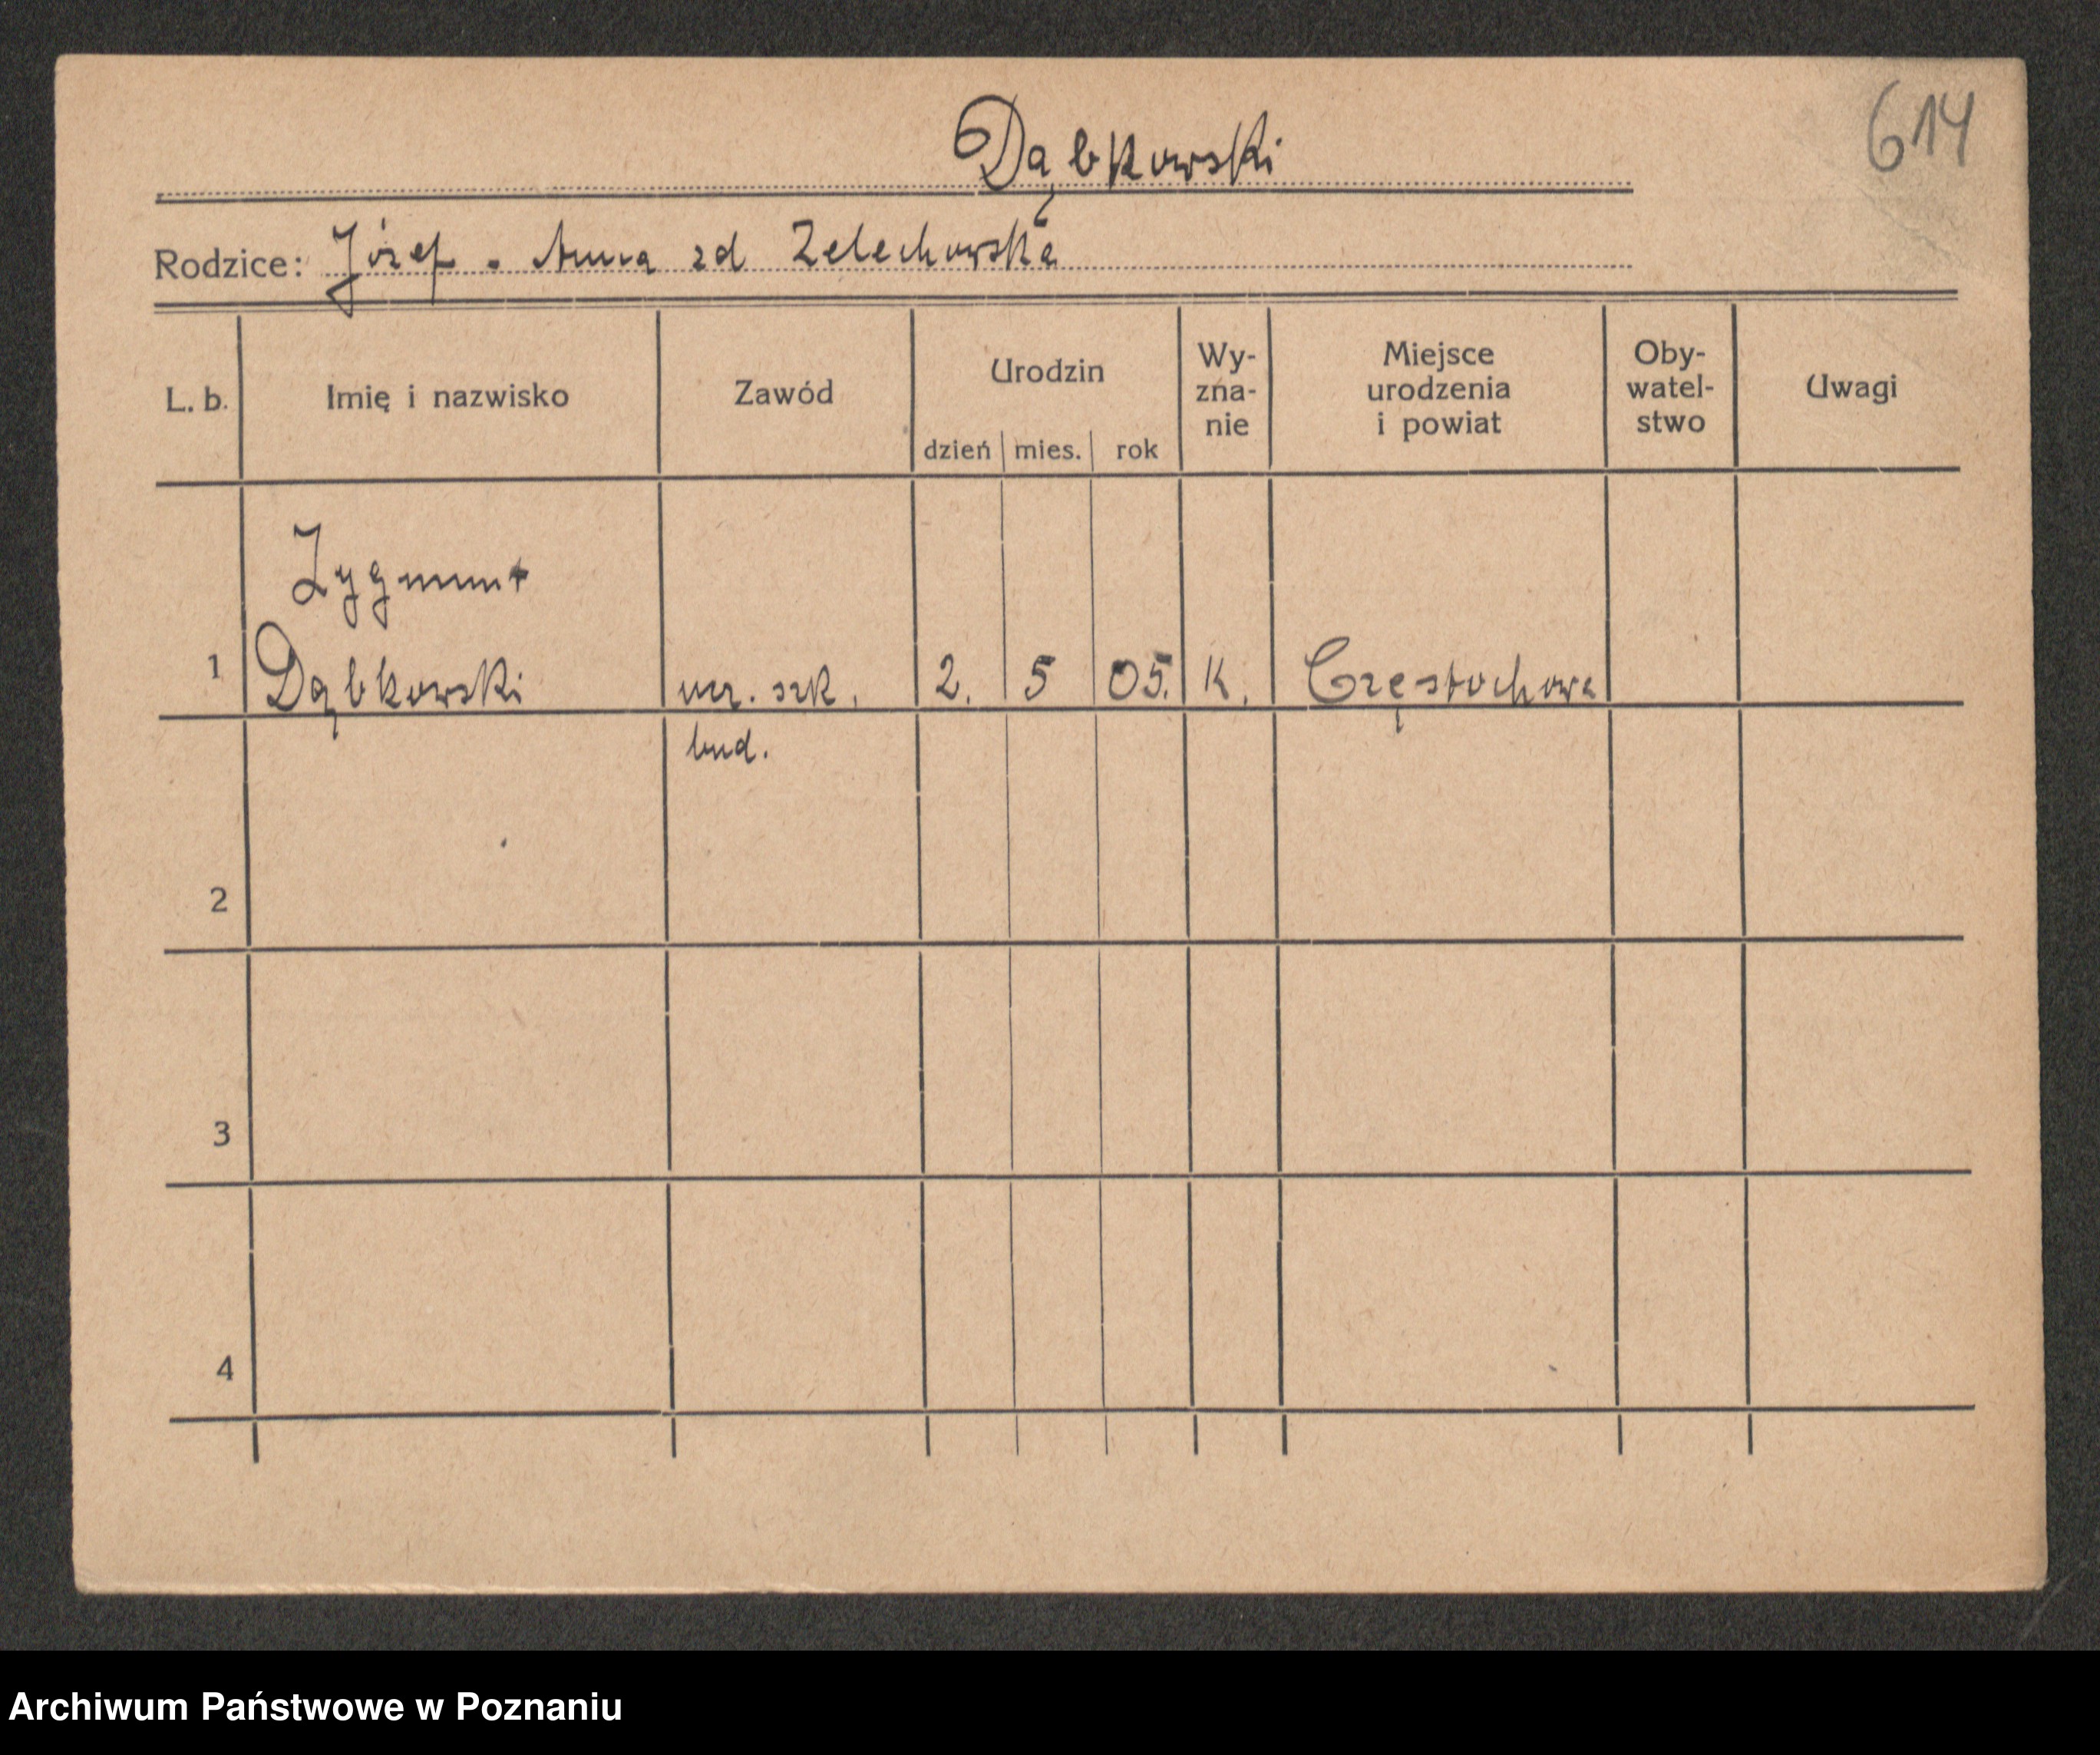 614
Dąbkowski
Rodzice: Józef . Anna zd Zelechowska
L. b.
Imię i nazwisko
Zawód
Urodzin
dzień mies. rok
Wy-
zna-
nie
Miejsce
urodzenia
i powiat
Oby-
watel-
stwo
Uwagi
Zygmunt
1 Dąbkowski ucz. szk. 2. 5 05. K. Częstochowa
bud.
2
3
4
Archiwum Państwowe w Poznaniu